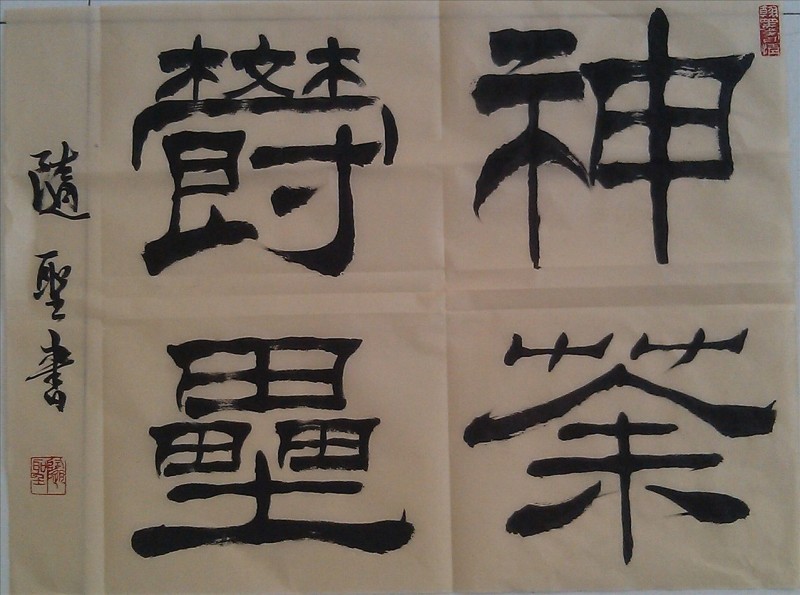 神荼
欝壘
隨聖書